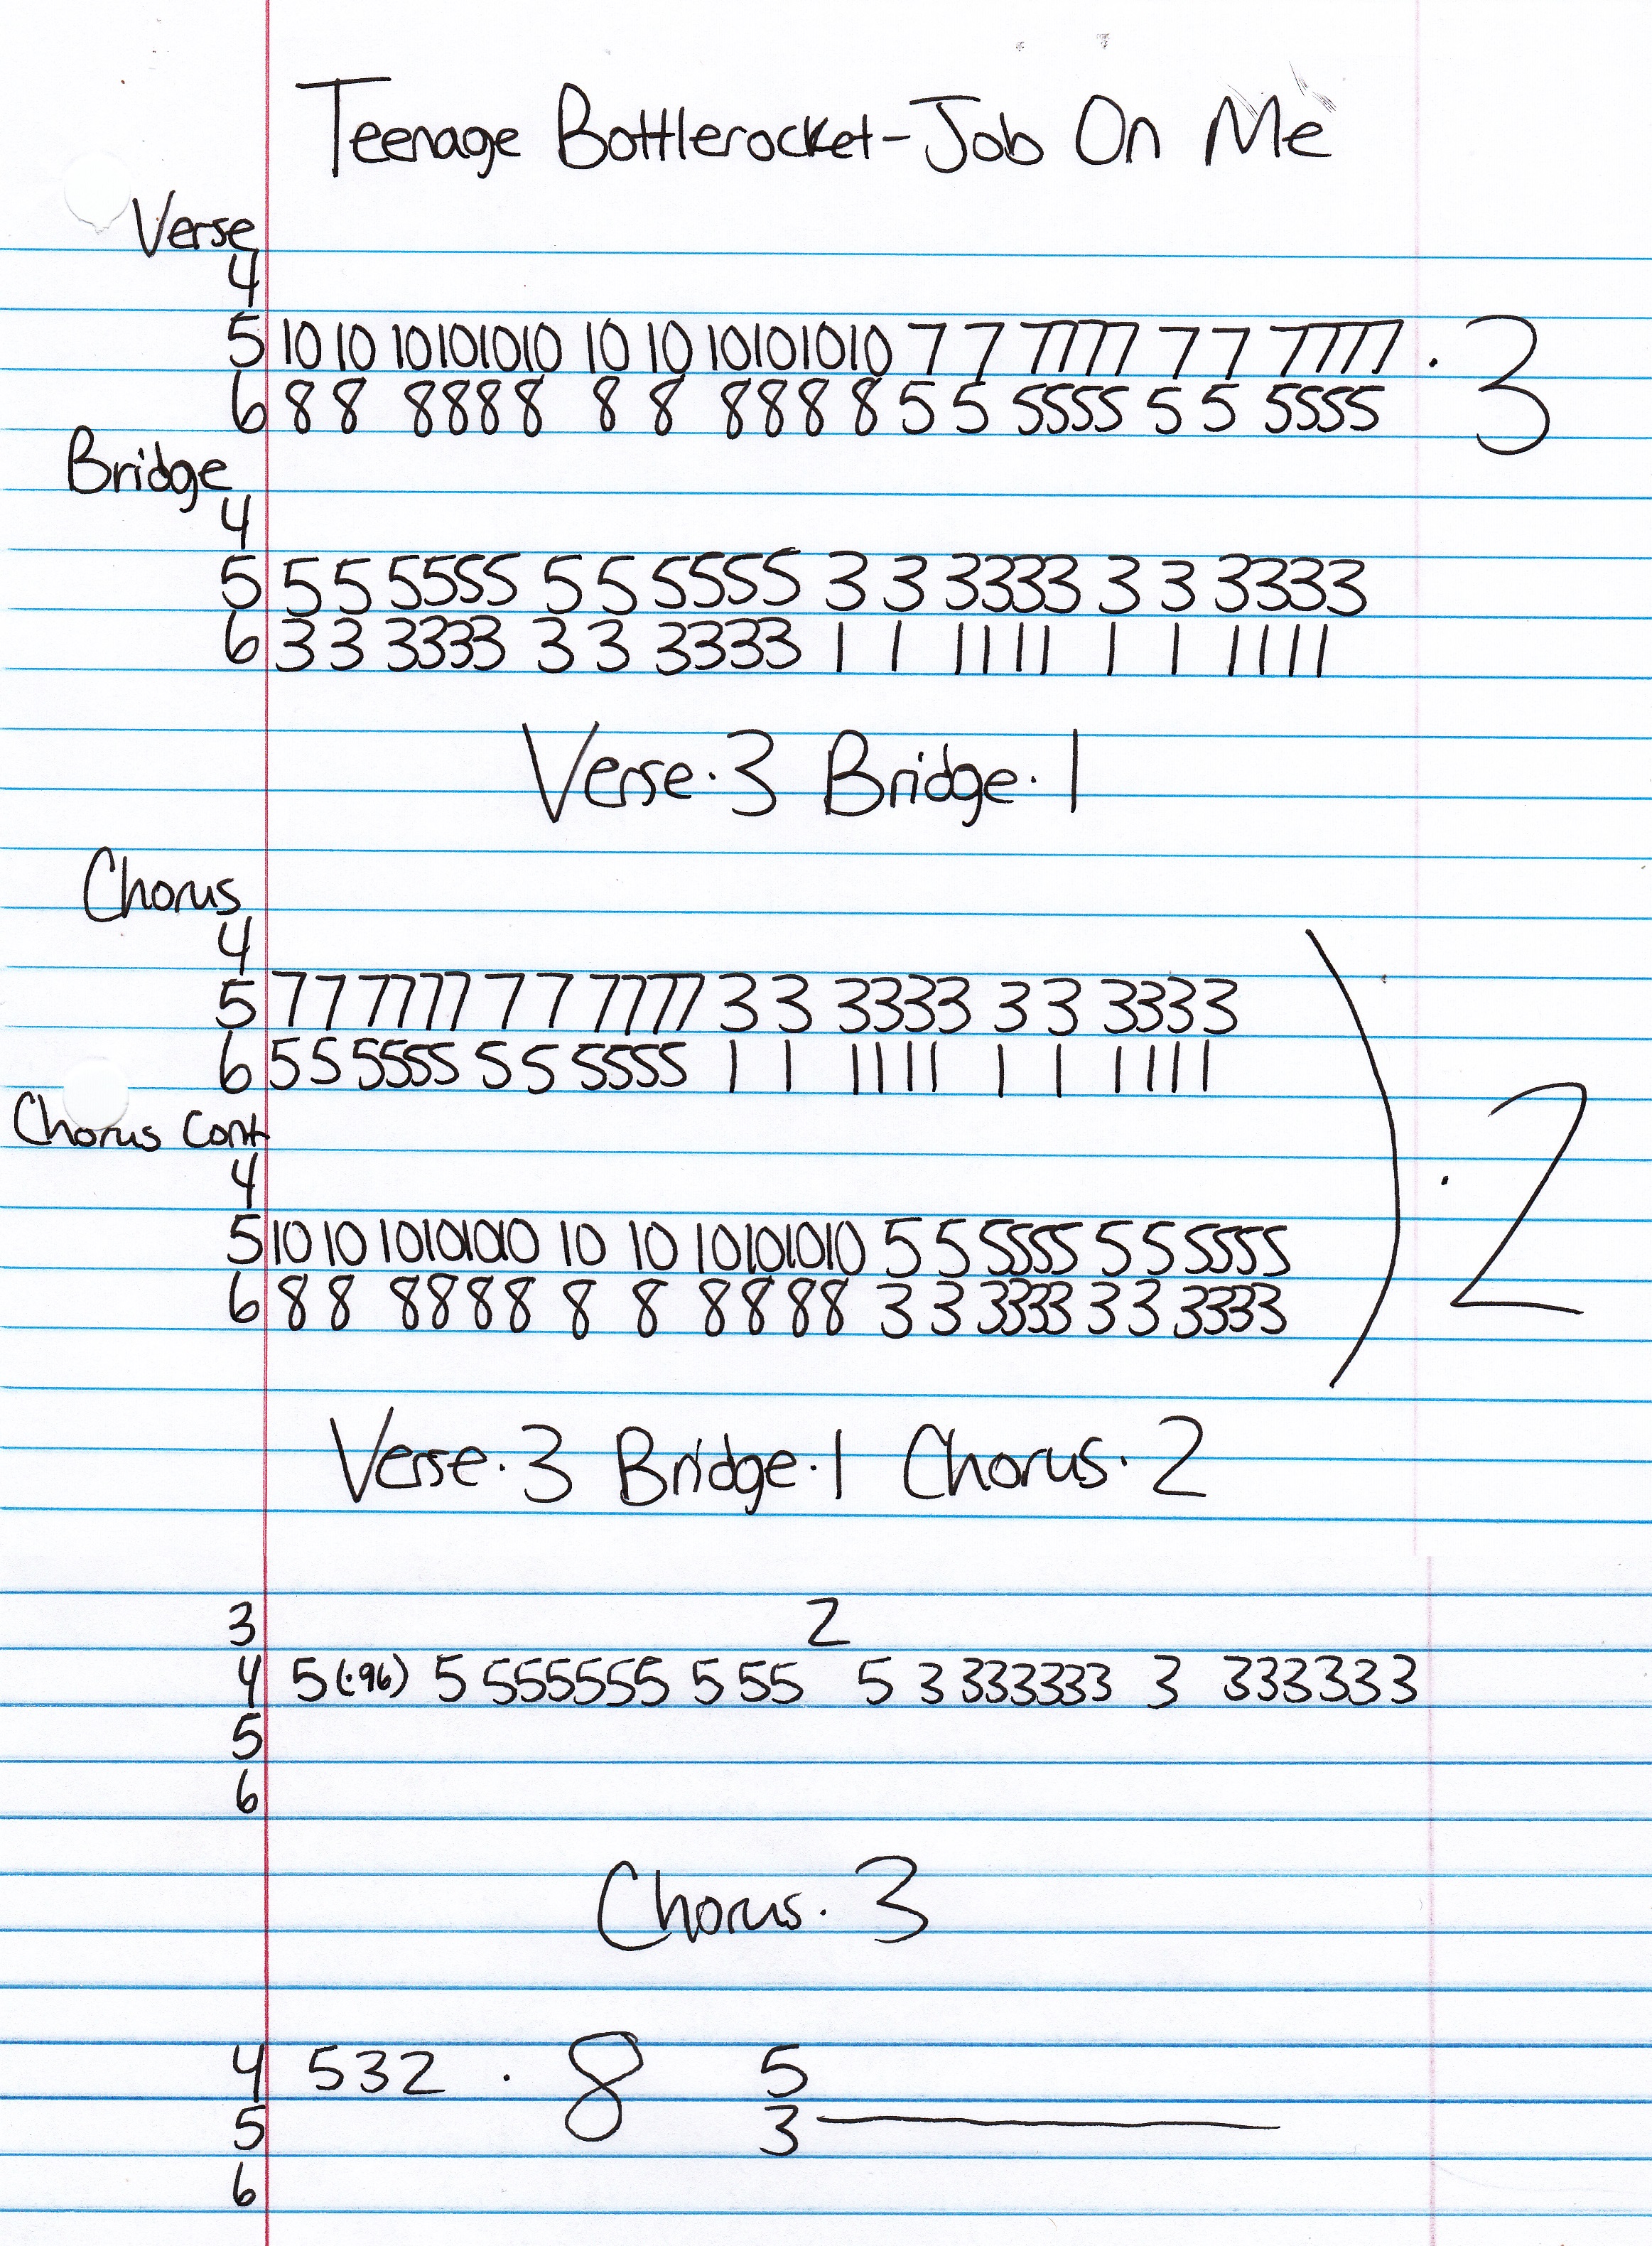 Teenage Bottlerocket-Job On Me
Verse
4
5 10 10 10101010 10 10 10101010 7 7 7777 7 7 7777 · 3
6 8 8 8888 8 8 8888 5 5 5555 5 5 5555
Bridge
4
5 5 5 5555 5 5 5555 3 3 3333 3 3 3333
6 3 3 3333 3 3 3333 1 1 1111 1 1 1111
Verse · 3 Bridge · 1
Chorus
4
5 7 7 7777 7 7 7777 3 3 3333 3 3 3333
6 5 5 5555 5 5 5555 1 1 1111 1 1 1111
Chorus Cont
4
) · 2
5 10 10 10101010 10 10 10101010 5 5 5555 5 5 5555
6 8 8 8888 8 8 8888 3 3 3333 3 3 3333
Verse · 3 Bridge · 1 Chorus · 2
3 2
4 5 (·96) 5 555555 5 55 5 3 333333 3 333333
5
6
Chorus · 3
4 532 · 8 5
5 3
6